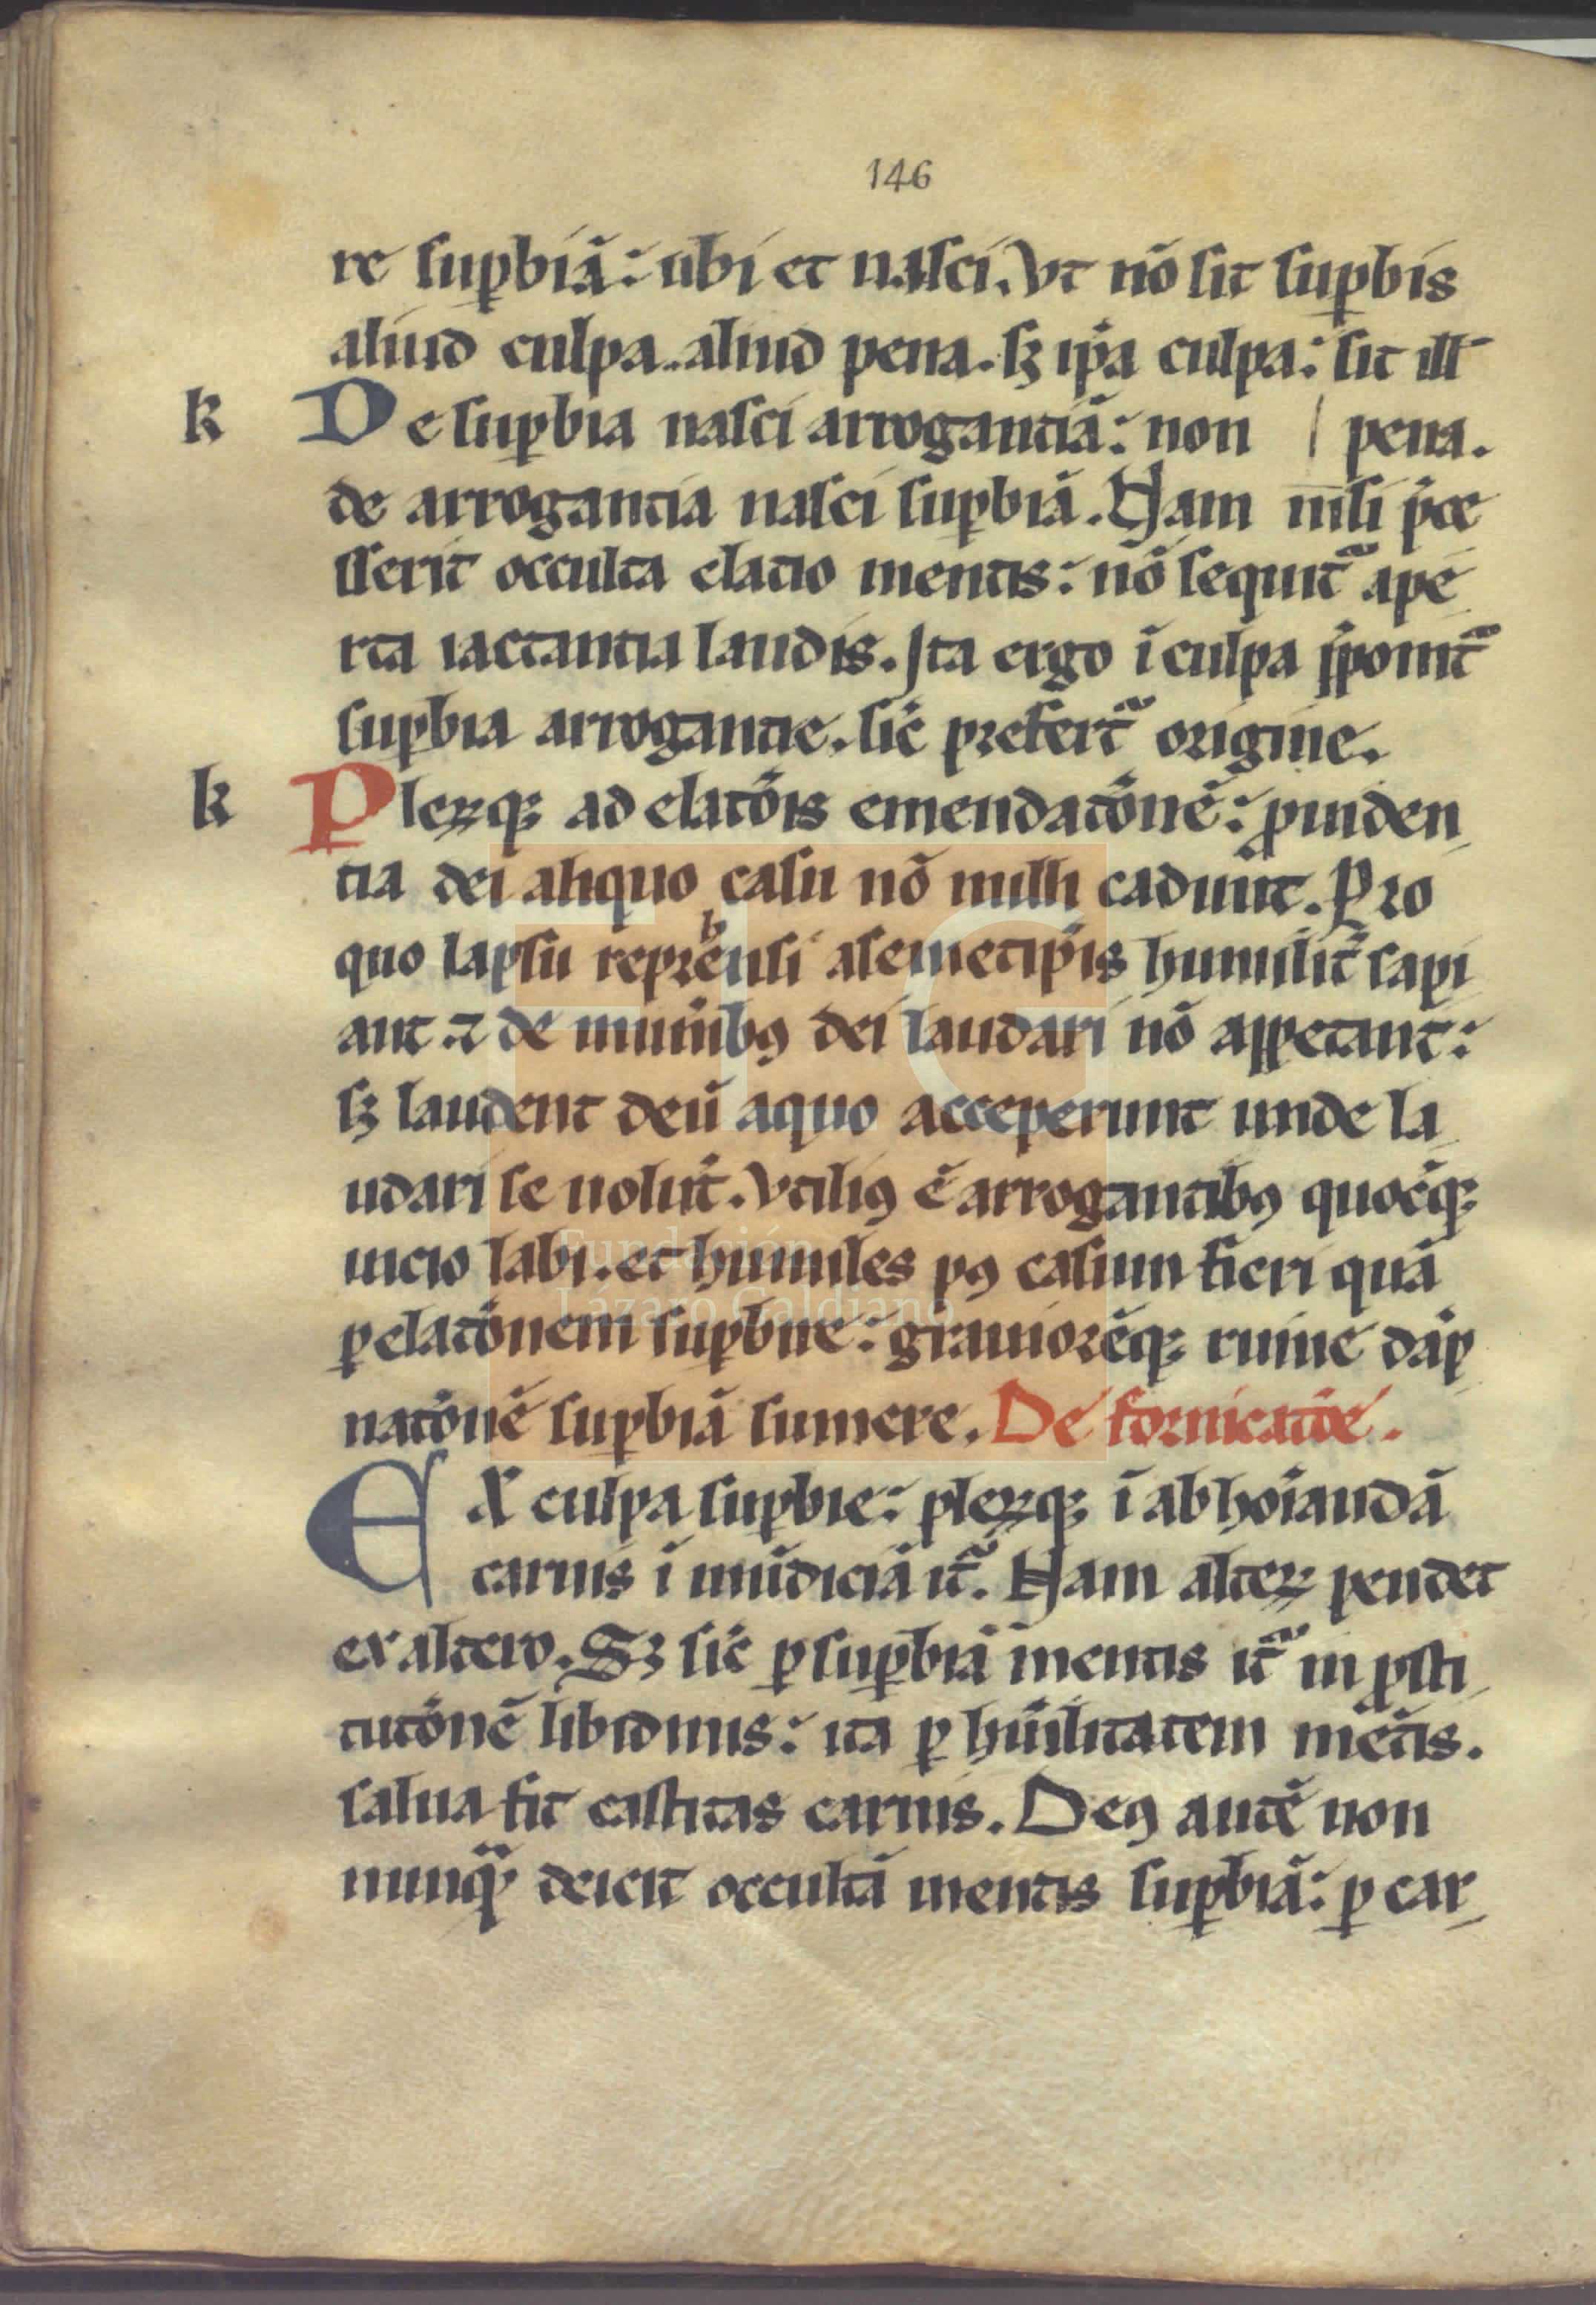 146
re suꝑbiã: ubi et nasci. Vt nõ sit suꝑbis
aliud culpa. aliud pena. sꝫ ip̃a culpa: sit ill̃
k De suꝑbia nasci arrogantiã: non | pena.
de arrogantia nasci suꝑbiã. Nam nisi p̃ce
sserit occulta elatio mentis: nõ sequit᷑ ape
rta iactantia laudis. Ita ergo ĩ culpa p̃ponit᷑
suꝑbia arrogantie. sic̃ prefert᷑ origine.
k Pleꝝqꝫ ad elatõis emendatõnẽ: ꝓuiden
tia dei aliquo casu nõ nulli cadunt. Pro
quo lapsu reprehẽnsi a semetip̃is humilit̃ sapi
ant. ⁊ de munĩbꝰ dei laudari nõ appetant:
sꝫ laudent deũ a quo acceperunt unde la
udari se uolut̃. Vtiliꝰ ẽ arrogantibꝰ quocũqꝫ
uicio labi. et humiles pꝰ casum fieri quã
ꝑ elatõnem suꝑbire: grauiorẽqꝫ ruine dãp
natõnẽ suꝑbiã sumere. De fornicatõe.
EX culpa suꝑbie: pleꝝqꝫ ĩ abhoĩandã
carnis ĩmũdiciã it᷑. Nam alteꝝ pendet
ex altero. Sꝫ sic̃ ꝑ suꝑbiã mentis it᷑ in ꝓsti
tutõnẽ libidinis: ita ꝑ hũilitatem mẽtis.
salua fit castitas carnis. Deꝰ autẽ non
nunqͣ deicit occultã mentis suꝑbiã: ꝑ car
Fundación
Lázaro Galdiano